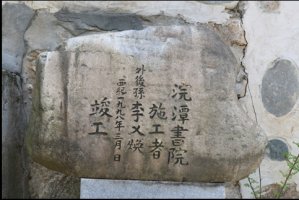 浣潭書院
施工者
李乂煥
外後孫
西紀一九九八年三月 日
竣工